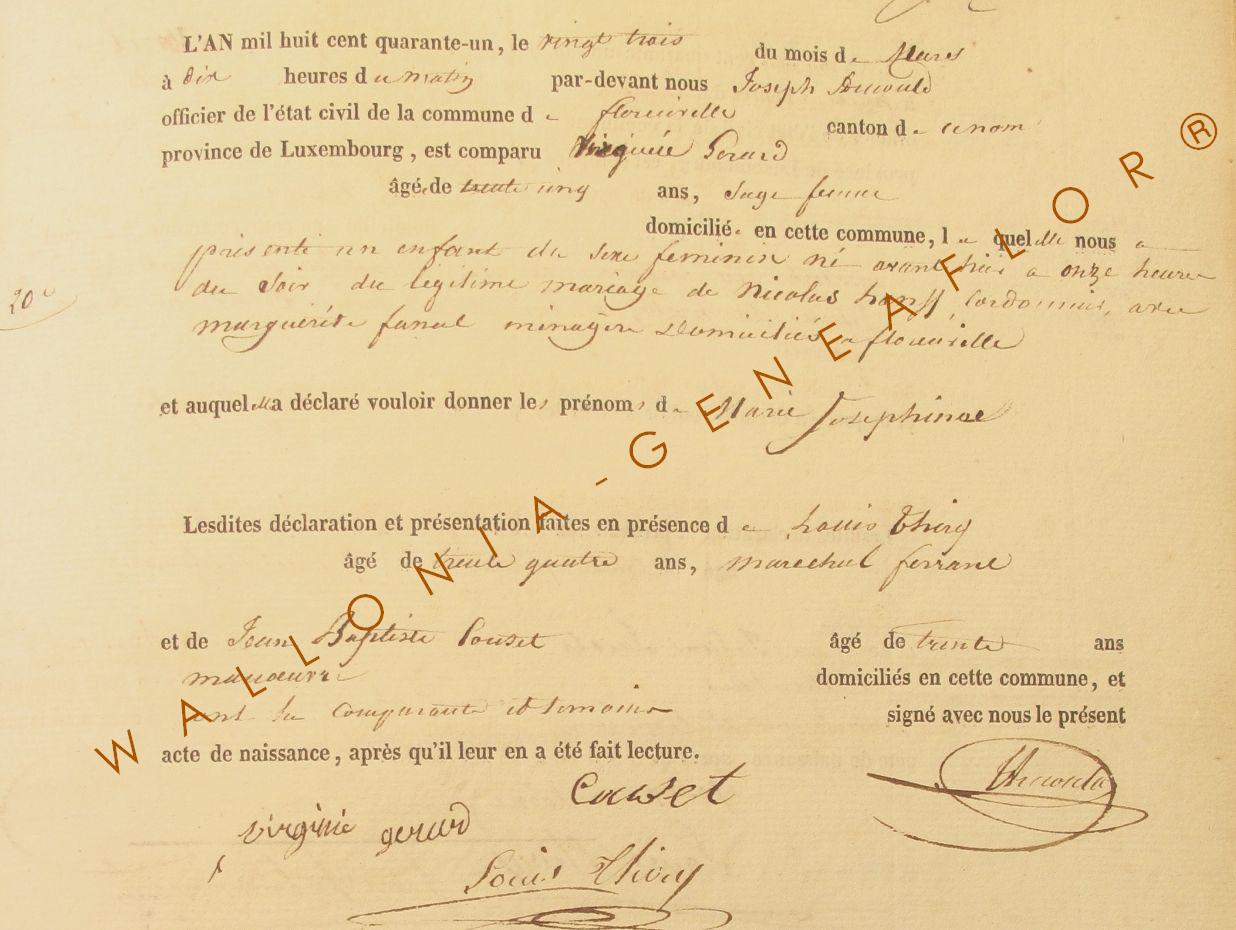 L'AN mil huit cent quarante-un, le vingt trois du mois de Mars
à dix heures du matin par-devant nous Joseph
officier de l'état civil de la commune de floreinville canton d'
province de Luxembourg, est comparu Virginie Gerard
âgé de trente cinq ans, Sage femme
domiciliée en cette commune, laquelle nous a
présenté un enfant du sexe feminin né avant hier a onze heures
du Soir du légitime mariage de Nicolas Cordonnier, avec
marguérite ménagère Domiciliés a
20e
et auquel elle a déclaré vouloir donner les prénoms de Marie Josephine
Lesdites déclaration et présentation faites en présence de Louis Thiry
âgé de trente quatre ans, marechal ferrant
et de Jean Baptiste Couset âgé de trente ans
manoeuvre domiciliés en cette commune, et
ont la comparante et temoins signé avec nous le présent
acte de naissance, après qu'il leur en a été fait lecture.
Couset
virginie gerard
Louis Thiry
WALLONIA-GENEAFLOR®